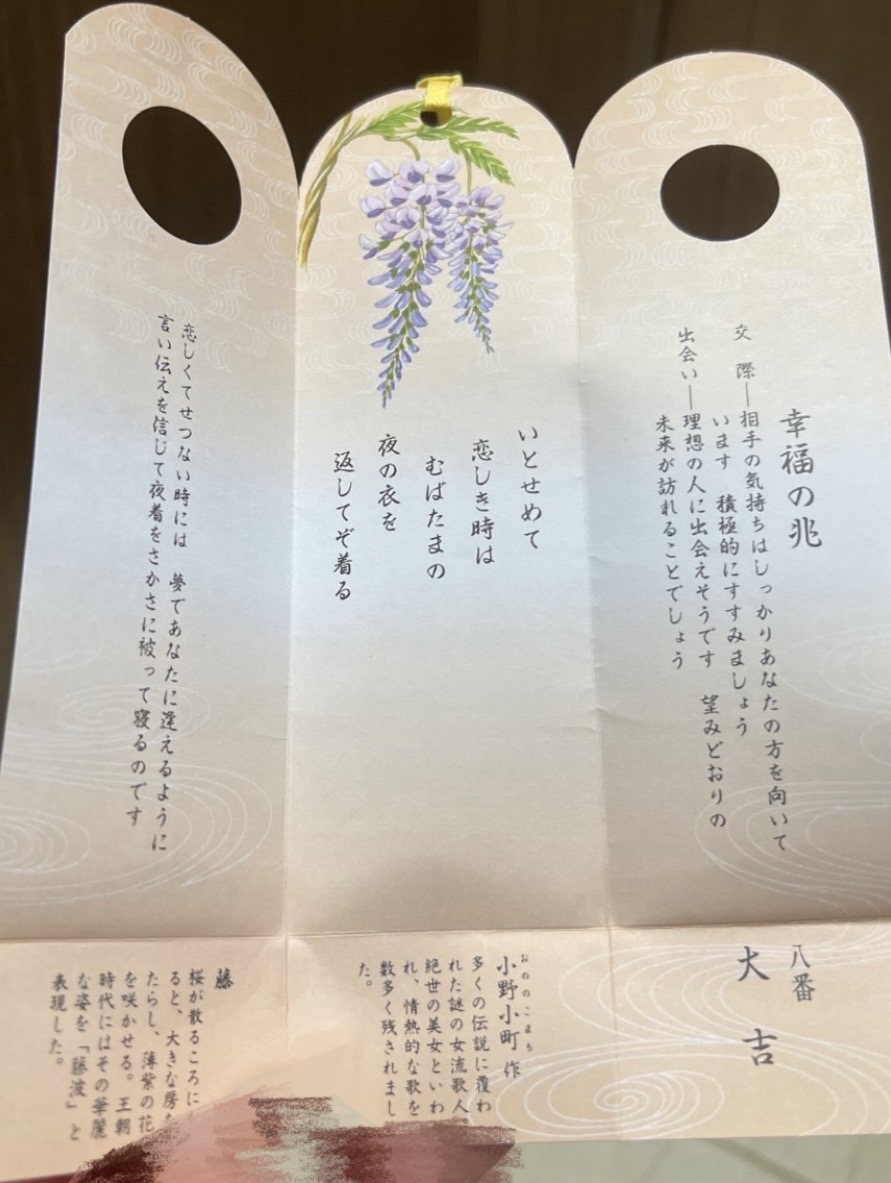 幸福の兆
交　際―相手の気持ちはしっかりあなたの方を向いて
います　積極的にすすみましょう
出会い―理想の人に出会えそうです　望みどおりの
未来が訪れることでしょう
八番
大吉
いとせめて
恋しき時は
むばたまの
夜の衣を
返してぞ着る
おののこまち
小野小町 作
多くの伝説に覆わ
れた謎の女流歌人。
絶世の美女といわ
れ、情熱的な歌を
数多く残されまし
た。
恋しくてせつない時には　夢であなたに逢えるように
言い伝えを信じて夜着をさかさに被って寝るのです
藤
桜が散るころに
ると、大きな房
たらし、薄紫の花
を咲かせる。王朝
時代にはその華麗
な姿を「藤波」と
表現した。